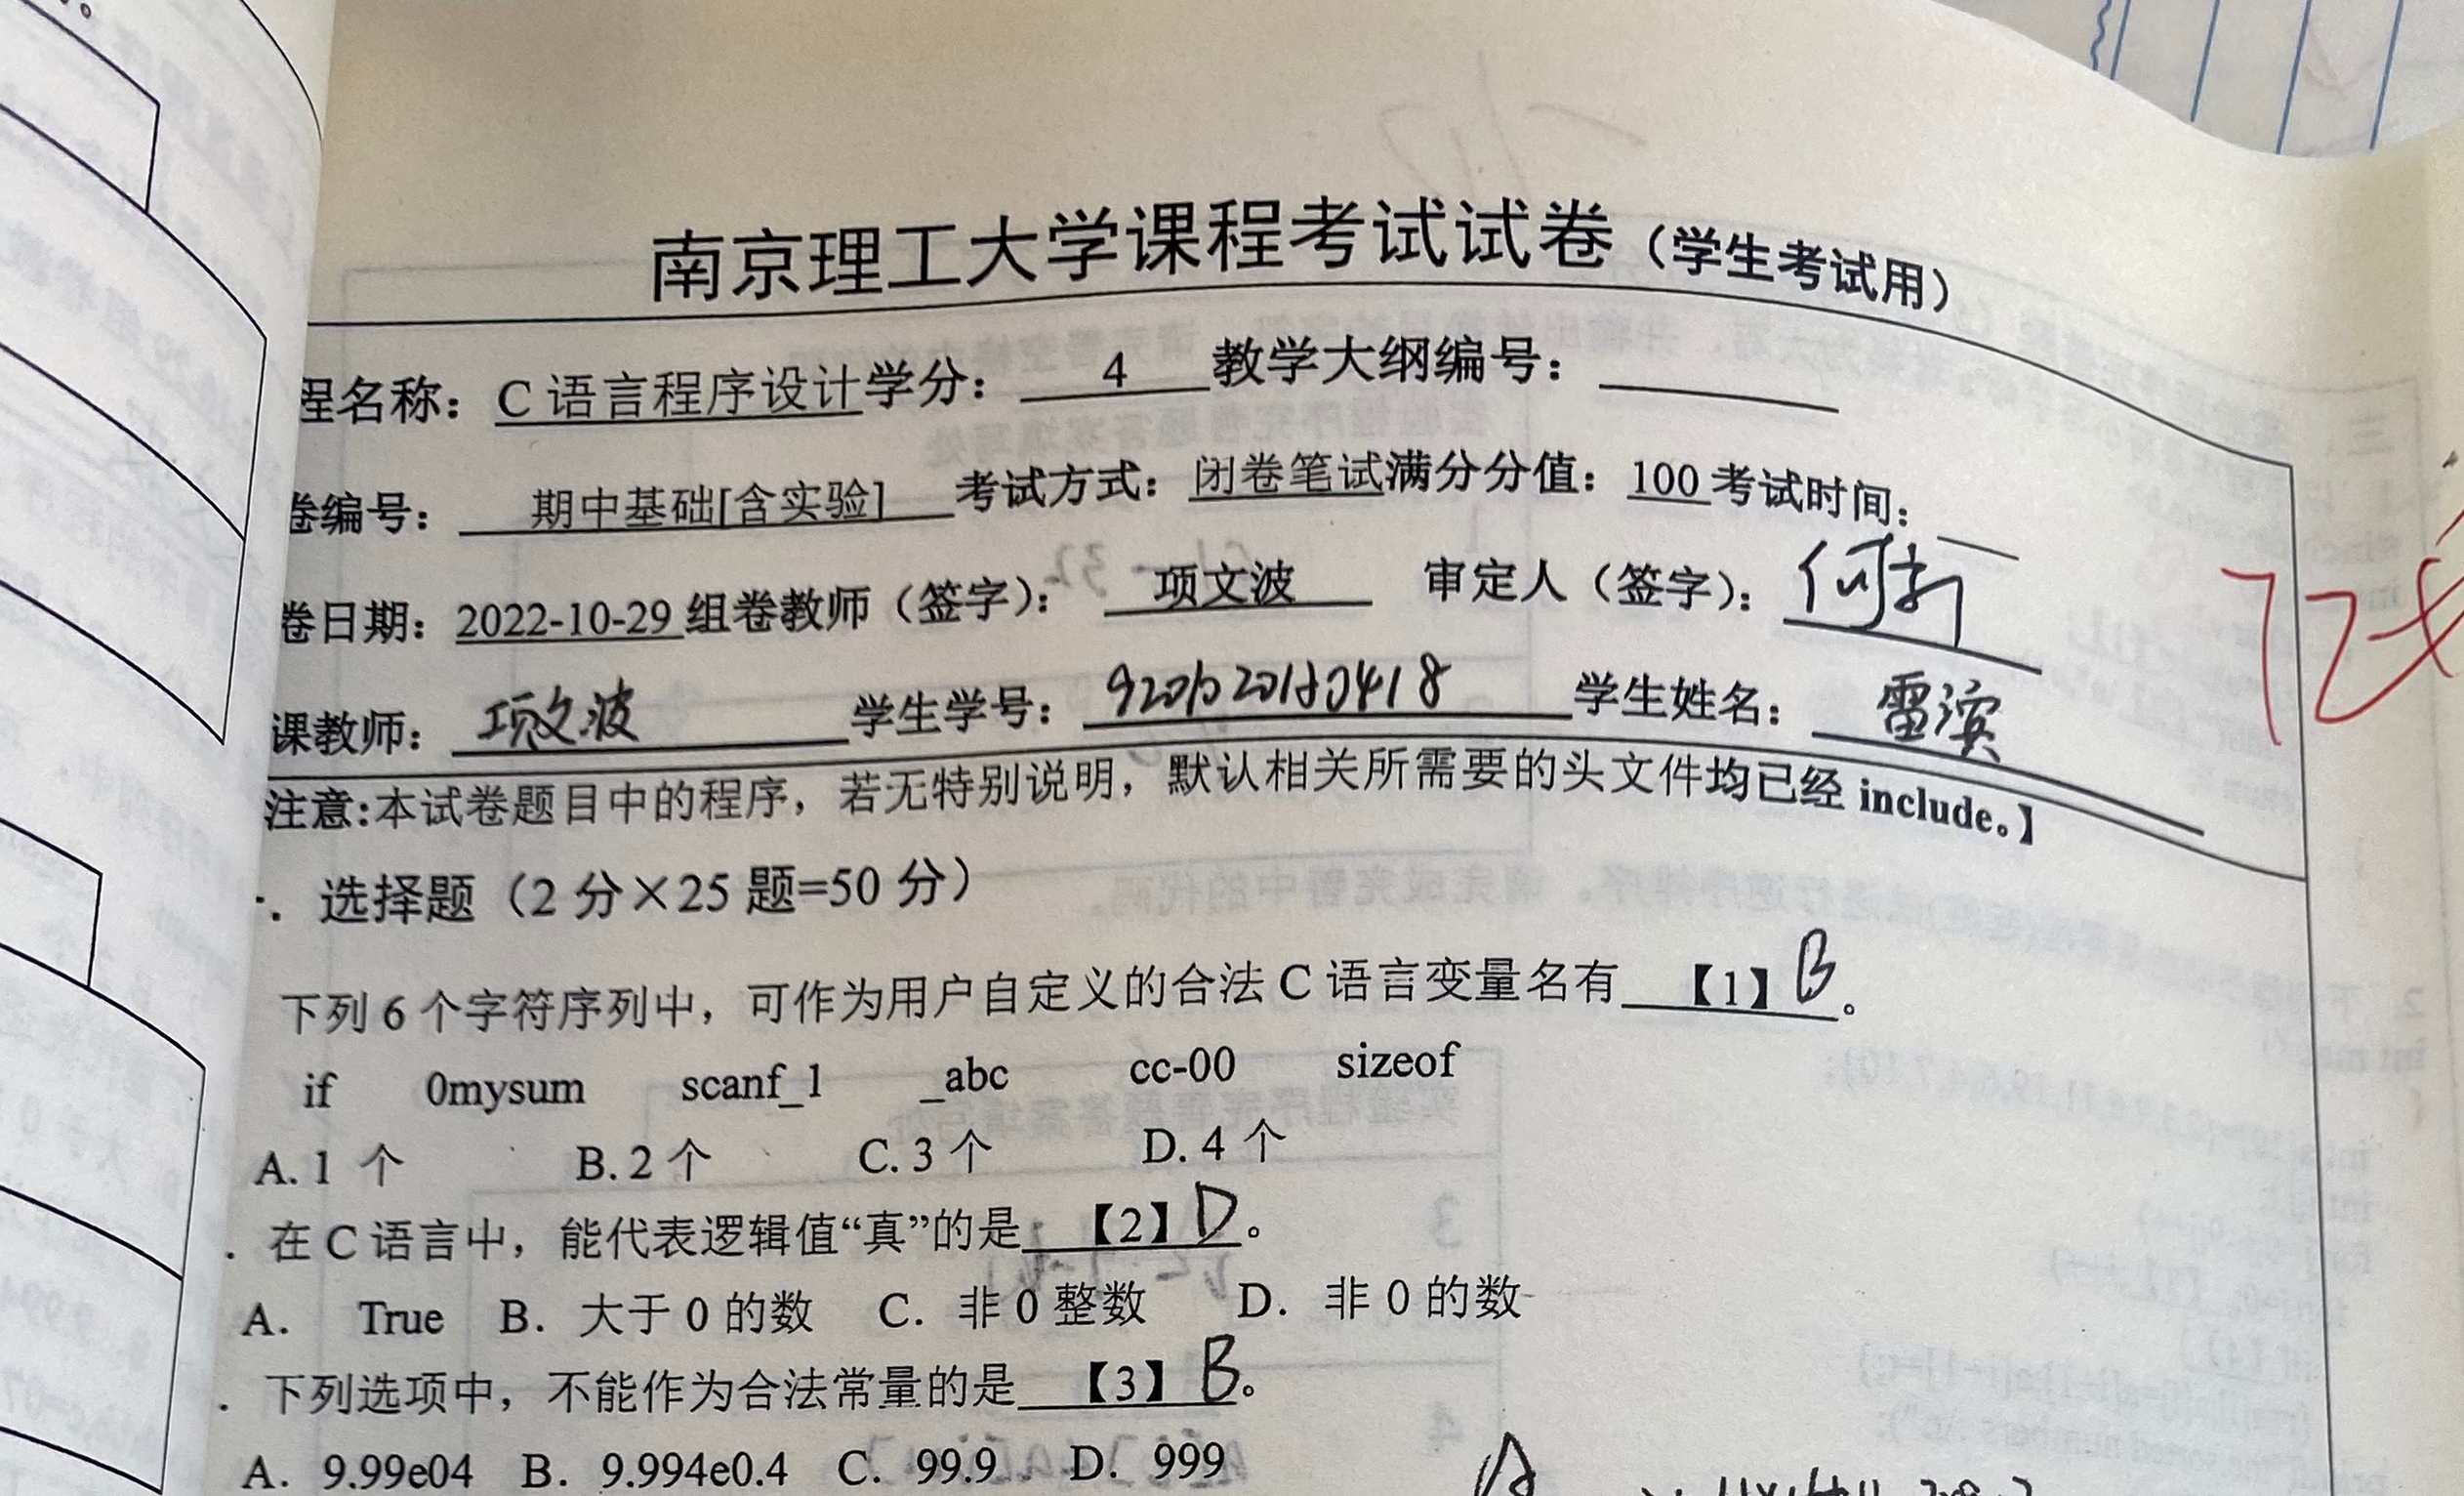 南京理工大学课程考试试卷（学生考试用）
程名称：C 语言程序设计学分：4 教学大纲编号：
卷编号：期中基础[含实验] 考试方式：闭卷笔试满分分值：100 考试时间：
卷日期：2022-10-29 组卷教师（签字）：项文波 审定人（签字）：
课教师：项文波 学生学号： 学生姓名：雷滨
注意:本试卷题目中的程序，若无特别说明，默认相关所需要的头文件均已经 include。】
. 选择题（2 分×25 题=50 分）
下列 6 个字符序列中，可作为用户自定义的合法 C 语言变量名有【1】B。
if 0mysum scanf_1 _abc cc-00 sizeof
A. 1 个 B. 2 个 C. 3 个 D. 4 个
. 在 C 语言中，能代表逻辑值“真”的是【2】D。
A. True B. 大于 0 的数 C. 非 0 整数 D. 非 0 的数
. 下列选项中，不能作为合法常量的是【3】B。
A. 9.99e04 B. 9.994e0.4 C. 99.9 D. 999
72